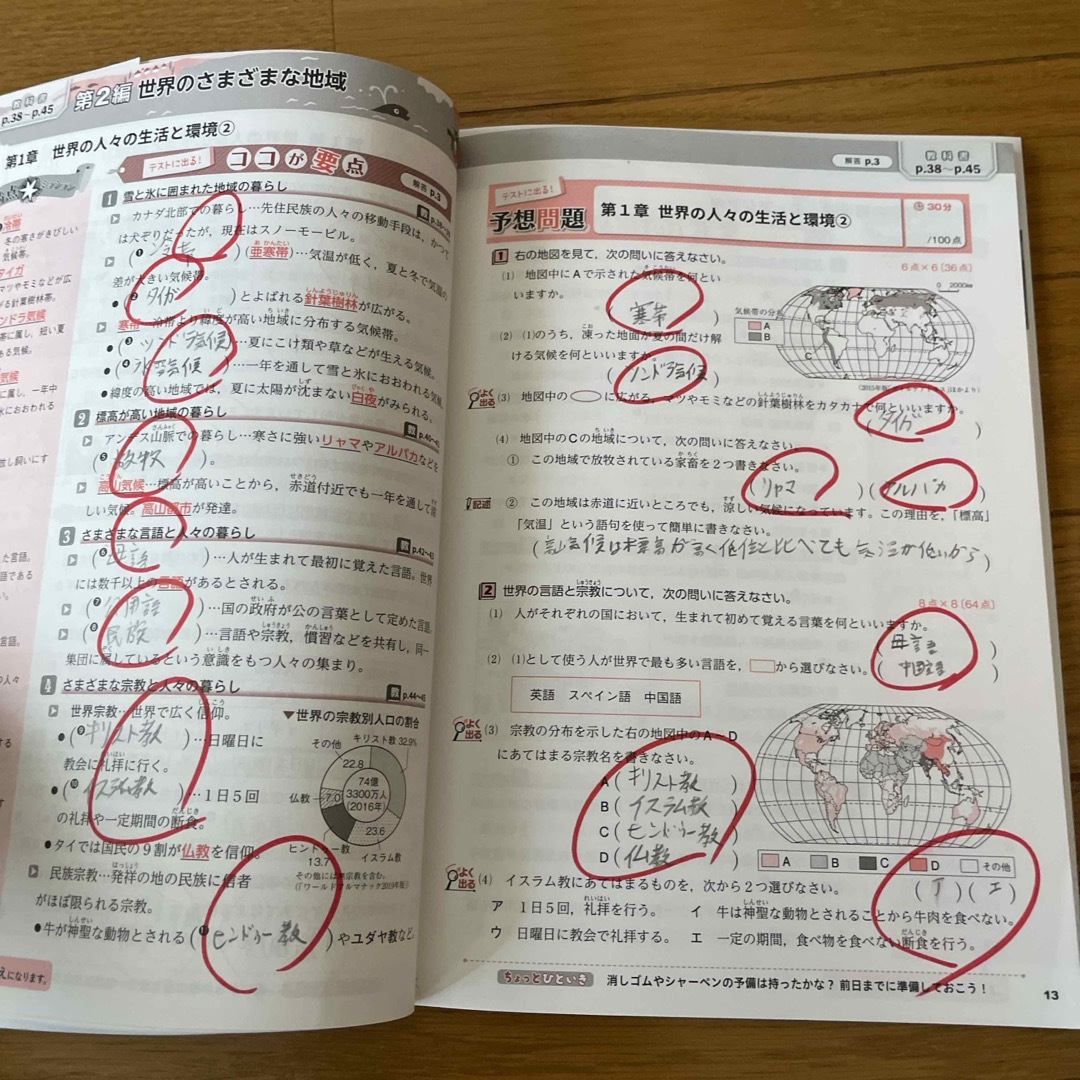 教科書
p.38~p.45
第2編 世界のさまざまな地域
第1章 世界の人々の生活と環境②
テストに出る!
ココが要点
解答 p.3
冷帯
冬の寒さがきびしい
気候帯。
タイガ
マツやモミなどが広
がる針葉樹林帯。
ンドラ気候
帯に属し、短い夏
1 雪と氷に囲まれた地域の暮らし
カナダ北部での暮らし…先住民族の人々の移動手段は、かつて
は犬ぞりだったが、現在はスノーモービル。
(❶冷帯)(亜寒帯)…気温が低く、夏と冬で気温の
差が大きい気候帯。
●(❷タイガ)とよばれる針葉樹林が広がる。
寒帯…冷帯より緯度が高い地域に分布する気候帯。
●(❸ツンドラ気候)…夏にこけ類や草などが生える気候。
●(❹氷雪気候)…一年を通して雪と氷におおわれる気候。
●緯度の高い地域では、夏に太陽が沈まない白夜がみられる。
2 標高が高い地域の暮らし
教 p.40~41
アンデス山脈での暮らし…寒さに強いリャマやアルパカなどを
(❺放牧)。
高山気候…標高が高いことから、赤道付近でも一年を通して涼
しい気候。高山都市が発達。
3 さまざまな言語と人々の暮らし
教 p.42~43
(❻母語)…人が生まれて最初に覚えた言語。世界
には数千以上の言語があるとされる。
(❼公用語)…国の政府が公の言葉として定めた言語。
(❽民族)…言語や宗教、慣習などを共有し、同一
集団に属しているという意識をもつ人々の集まり。
4 さまざまな宗教と人々の暮らし
教 p.44~45
世界宗教…世界で広く信仰。
●(❾キリスト教)…日曜日に
教会に礼拝に行く。
●(❿イスラム教)…1日5回
の礼拝や一定期間の断食。
●タイでは国民の9割が仏教を信仰。
民族宗教…発祥の地の民族に信者
がほぼ限られる宗教。
●牛が神聖な動物とされる(⓫ヒンドゥー教)やユダヤ教など。
▼世界の宗教別人口の割合
その他
キリスト教 32.9%
22.8
74億
3300万人
(2016年)
仏教 7.0
23.6
ヒンドゥー教
13.7
イスラム教
その他には無宗教を含む。
(「ワールドアルマナック2019年版」)
えになります。
解答 p.3
教科書
p.38~p.45
テストに出る!
予想問題
第1章 世界の人々の生活と環境②
30分
/100点
1 右の地図を見て、次の問いに答えなさい。
6点×6〔36点〕
(1) 地図中にAで示された気候帯を何とい
いますか。
(寒帯)
(2) (1)のうち、凍った地面が夏の間だけ解
ける気候を何といいますか。
(ツンドラ気候)
0 2000km
気候帯の分布
A
B
C
よく出る
(3) 地図中の に広がる、マツやモミなどの針葉樹林をカタカナで何といいますか。
(タイガ)
(4) 地図中のCの地域について、次の問いに答えなさい。
① この地域で放牧されている家畜を2つ書きなさい。
(リャマ)(アルパカ)
記述 ② この地域は赤道に近いところでも、涼しい気候になっています。この理由を、「標高」
「気温」という語句を使って簡単に書きなさい。
2 世界の言語と宗教について、次の問いに答えなさい。
8点×8〔64点〕
(1) 人がそれぞれの国において、生まれて初めて覚える言葉を何といいますか。
(母語)
(2) (1)として使う人が世界で最も多い言語を、 から選びなさい。(中国語)
英語 スペイン語 中国語
よく出る
(3) 宗教の分布を示した右の地図中のA~D
にあてはまる宗教名を書きなさい。
A(キリスト教)
B(イスラム教)
C(ヒンドゥー教)
D(仏教)
A B C D その他
よく出る
(4) イスラム教にあてはまるものを、次から2つ選びなさい。
(ア)(エ)
ア 1日5回、礼拝を行う。 イ 牛は神聖な動物とされることから牛肉を食べない。
ウ 日曜日に教会で礼拝する。 エ 一定の期間、食べ物を食べない断食を行う。
ちょっとひといき 消しゴムやシャーペンの予備は持ったかな？前日までに準備しておこう！
13